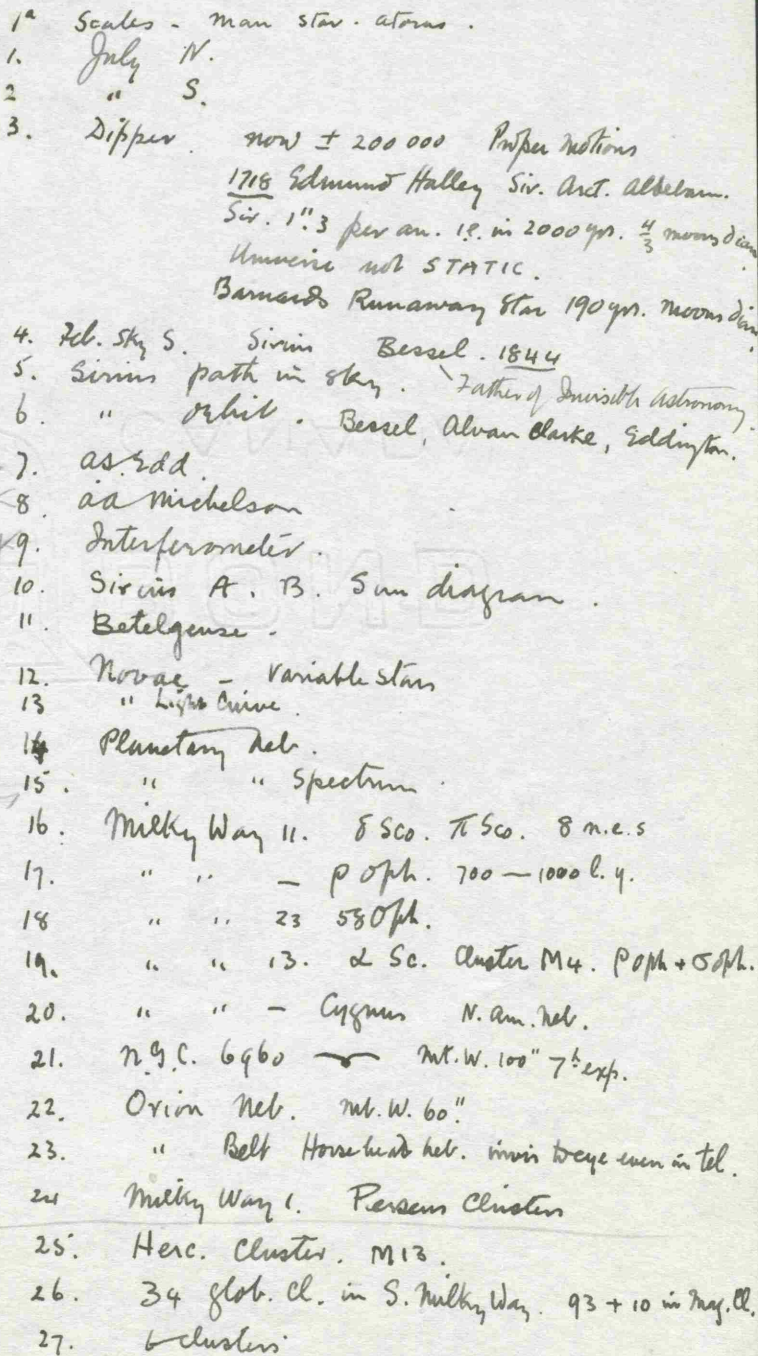 1a Scales - man star. atoms.
1. July N.
2 " S.
3. Dipper. now ± 200 000 Proper Motions
1718 Edmund Halley Sir. Arct. Aldebaran.
Sir. 1".3 per an. i.e. in 2000 yrs. 4/3 moons diam.
Universe not STATIC.
Barnards Runaway Star 190 yrs. moons diam.
4. Feb. Sky S. Sirius Bessel. 1844
5. Sirius path in sky. Father of Invisible Astronomy.
6. " orbit. Bessel, Alvan Clarke, Eddington.
7. A S Edd.
8. AA Michelson
9. Interferometer.
10. Sirius A. B. Sun diagram.
11. Betelgeuse.
12. Novae - Variable Stars
13 " Light Curve
14 Planetary Neb.
15. " " Spectrum.
16. Milky Way 11. δ Sco. π Sco. 8 n.e.s
17. " " - ρ Oph. 700 - 1000 l.y.
18 " " 23 58 Oph.
19. " " 13. α Sc. Cluster M4. ρ Oph + σ Oph.
20. " " - Cygnus N. Am. Neb.
21. N.G.C. 6960 Mt. W. 100" 7h exp.
22. Orion Neb. Mt. W. 60"
23. " Belt Horsehead Neb. invis to eye even in tel.
24 Milky Way 1. Perseus Clusters
25. Herc. Cluster. M13.
26. 34 glob. Cl. in S. Milky Way. 93 + 10 in Mag. Cl.
27. 6 clusters